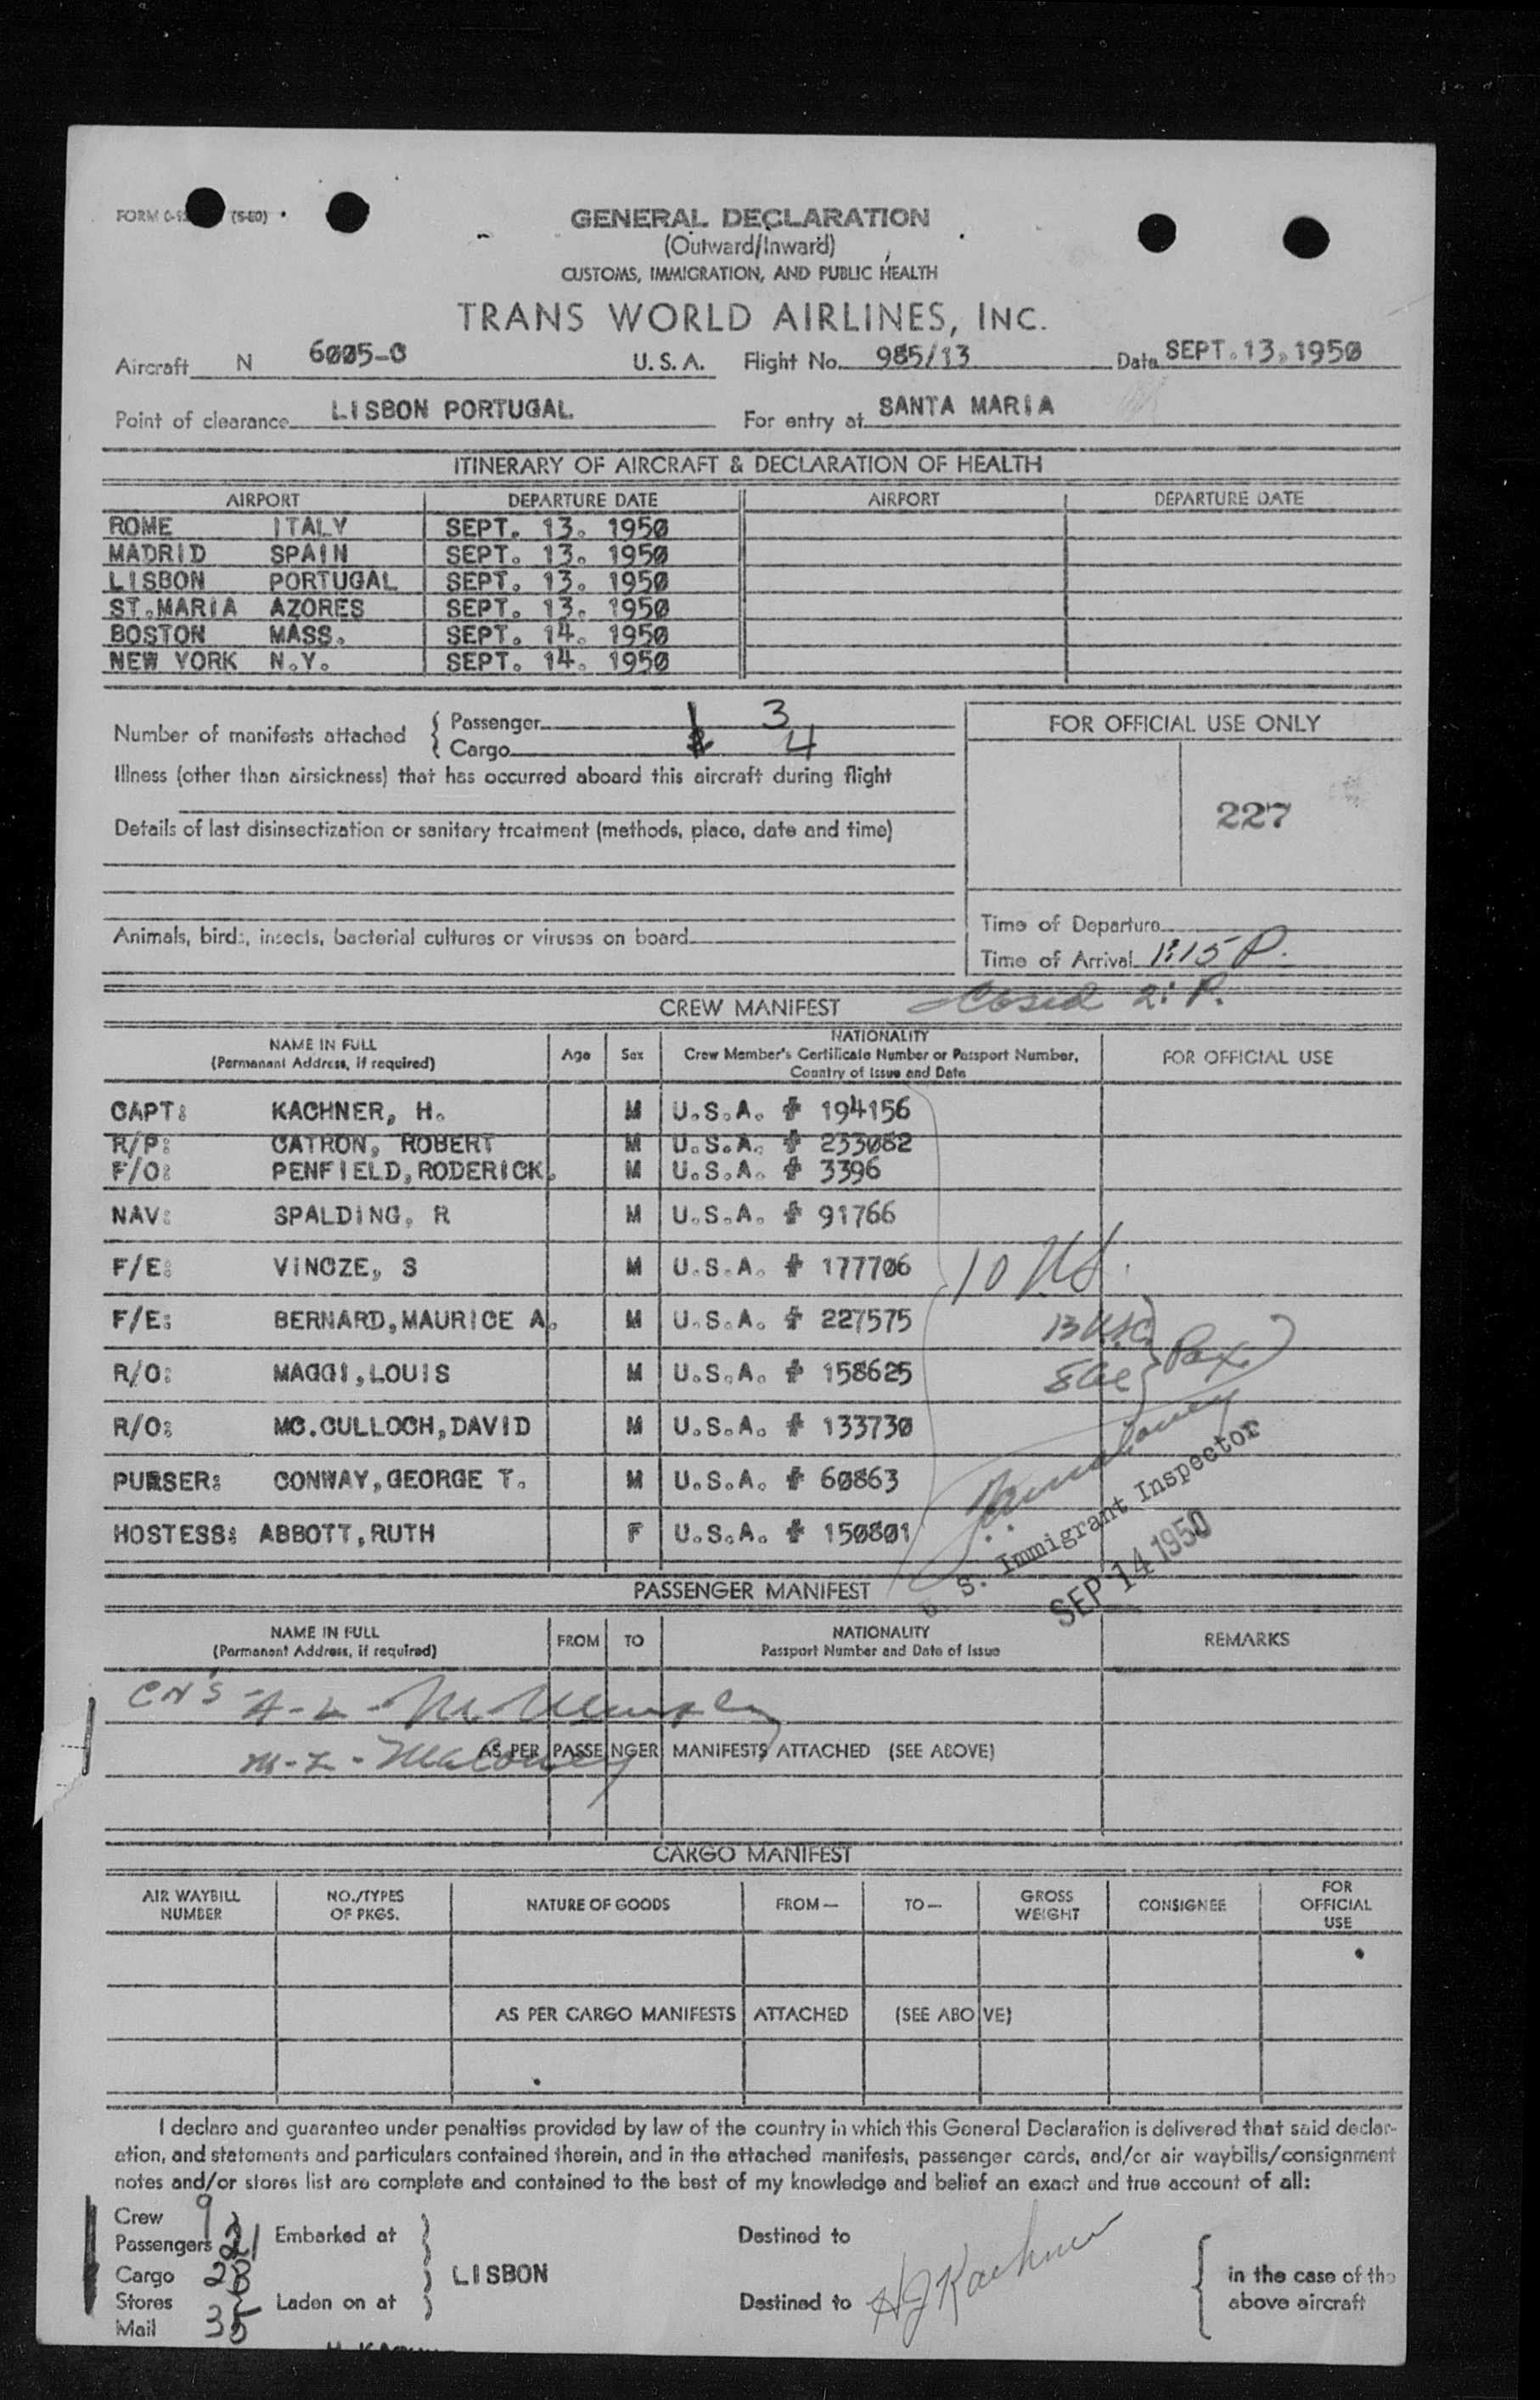 FORM (5-50)
GENERAL DECLARATION
(Outward/Inward)
CUSTOMS, IMMIGRATION, AND PUBLIC HEALTH
TRANS WORLD AIRLINES, INC.
Aircraft N 6005-C U.S.A. Flight No. 985/13 Date SEPT.13,1950
Point of clearance LISBON PORTUGAL For entry at SANTA MARIA
ITINERARY OF AIRCRAFT & DECLARATION OF HEALTH
AIRPORT DEPARTURE DATE AIRPORT DEPARTURE DATE
ROME ITALY SEPT. 13. 1950
MADRID SPAIN SEPT. 13. 1950
LISBON PORTUGAL SEPT. 13. 1950
ST.MARIA AZORES SEPT. 13. 1950
BOSTON MASS. SEPT. 14. 1950
NEW YORK N.Y. SEPT. 14. 1950
Number of manifests attached { Passenger 3
Cargo 4
FOR OFFICIAL USE ONLY
Illness (other than airsickness) that has occurred aboard this aircraft during flight
227
Details of last disinsectization or sanitary treatment (methods, place, date and time)
Time of Departure
Animals, birds, insects, bacterial cultures or viruses on board
Time of Arrival 1:15 P.
Closed 2: P.
CREW MANIFEST
NAME IN FULL
(Permanent Address, if required)
Age Sex
NATIONALITY
Crew Member's Certificate Number or Passport Number,
Country of Issue and Date
FOR OFFICIAL USE
CAPT: KACHNER, H. M U.S.A. # 194156
R/P: CATRON, ROBERT M U.S.A. # 233082
F/O: PENFIELD,RODERICK. M U.S.A. # 3396
NAV: SPALDING, R M U.S.A. # 91766
F/E: VINCZE, S M U.S.A. # 177706
10 US.
F/E: BERNARD,MAURICE A. M U.S.A. # 227575
13 USC
R/O: MAGGI,LOUIS M U.S.A. # 158625
8 al } Pax
R/O: MC.CULLOCH,DAVID M U.S.A. # 133730
PURSER: CONWAY,GEORGE T. M U.S.A. # 60863
HOSTESS: ABBOTT,RUTH F U.S.A. # 150801
U. S. Immigrant Inspector
SEP 14 1950
PASSENGER MANIFEST
NAME IN FULL
(Permanent Address, if required)
FROM TO
NATIONALITY
Passport Number and Date of Issue
REMARKS
CNS A-L-
M-L- Maloney
AS PER PASSENGER MANIFESTS ATTACHED (SEE ABOVE)
CARGO MANIFEST
AIR WAYBILL NUMBER
NO./TYPES OF PKGS.
NATURE OF GOODS
FROM—
TO—
GROSS WEIGHT
CONSIGNEE
FOR OFFICIAL USE
AS PER CARGO MANIFESTS ATTACHED (SEE ABOVE)
I declare and guarantee under penalties provided by law of the country in which this General Declaration is delivered that said declar-
ation, and statements and particulars contained therein, and in the attached manifests, passenger cards, and/or air waybills/consignment
notes and/or stores list are complete and contained to the best of my knowledge and belief an exact and true account of all:
Crew 9
Passengers 21 Embarked at Destined to
Cargo 28 LISBON in the case of the
Stores Laden on at Destined to HJ Kachner above aircraft
Mail 35